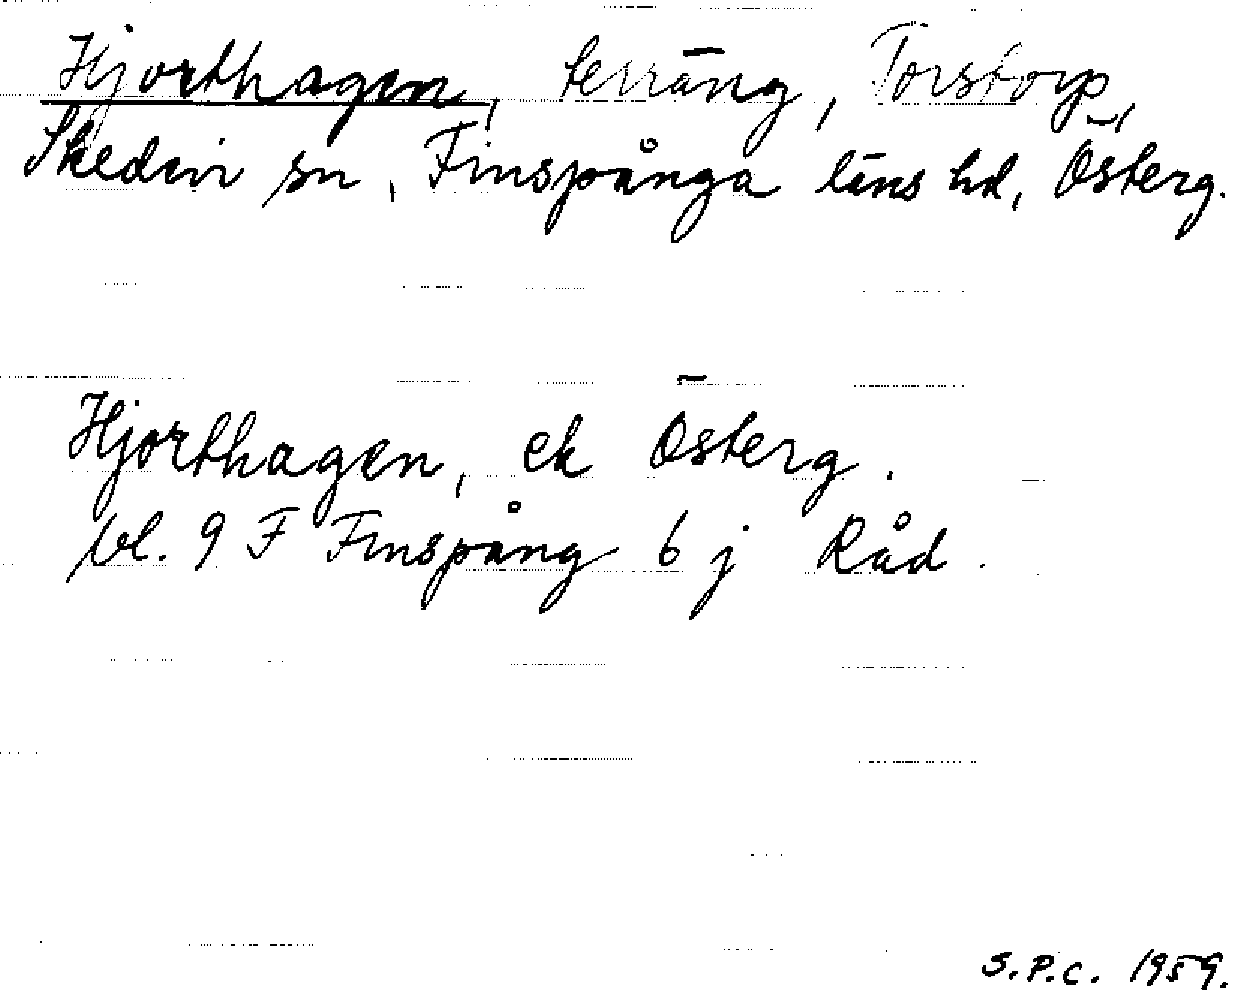 Hjorthagen, terräng, Torstorp,
Skedevi sn, Finspånga läns hd, Österg.
Hjorthagen, ek Österg.
bl. 9 F Finspång 6 j Råd.
S.P.C. 1959.